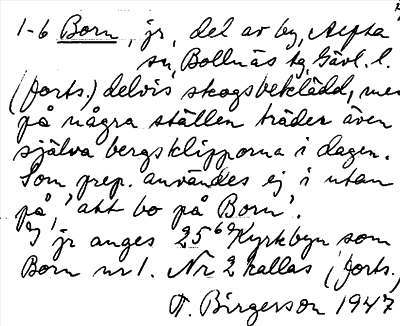 1-6 Born, jr, del av by, Alfta
sn, Bollnäs tg, Gävl. l.
(forts.) delvis skogsbeklädd, men
på några ställen träder även
själva bergsklipporna i dagen.
Som prep. användes ej i utan
på, 'att bo på Born'.
I jr anges 25 6 Kyrkbyn som
Born nr 1. Nr 2 kallas (forts.)
T. Birgerson 1947